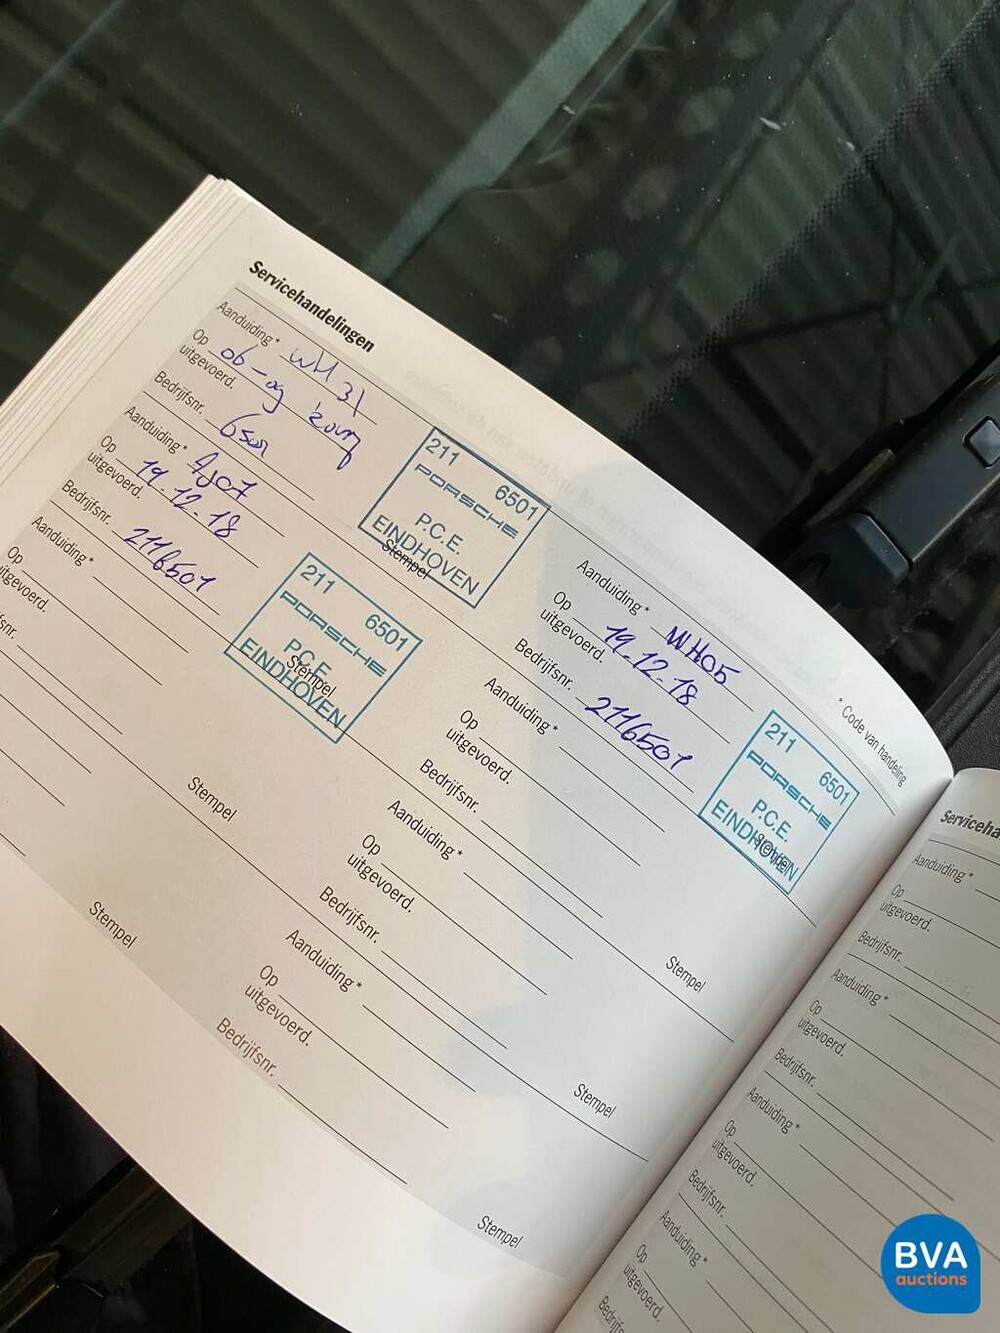 Servicehandelingen
Aanduiding* WH 31
Op
uitgevoerd.
Bedrijfsnr. 6501
211 6501
PORSCHE
P.C.E.
EINDHOVEN
Stempel
Aanduiding*
Op
uitgevoerd. 19.12.18
Bedrijfsnr. 2116501
211 6501
PORSCHE
P.C.E.
EINDHOVEN
Stempel
Aanduiding*
Op
uitgevoerd.
Stempel
Stempel
Aanduiding* WH05
Op
uitgevoerd. 19.12.18
Bedrijfsnr. 2116501
211 6501
PORSCHE
P.C.E.
EINDHOVEN
Stempel
Aanduiding*
Op
uitgevoerd.
Bedrijfsnr.
Stempel
Aanduiding*
Op
uitgevoerd.
Bedrijfsnr.
Stempel
Aanduiding*
Op
uitgevoerd.
Bedrijfsnr.
Stempel
* Code van handeling
Aanduiding*
Op
uitgevoerd.
Bedrijfsnr.
Aanduiding*
Op
uitgevoerd.
Bedrijfsnr.
Aanduiding*
Op
uitgevoerd.
Bedrijfsnr.
Aanduiding*
Op
uitgevoerd.
BVA
auctions